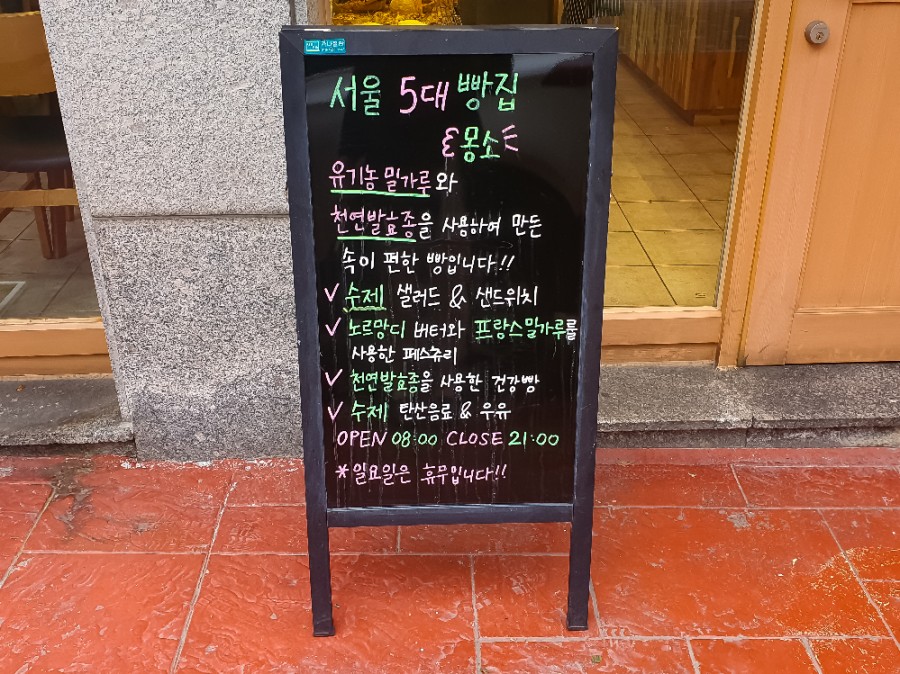 서울 5대 빵집
몽소
유기농 밀가루와
천연발효종을 사용하여 만든
속이 편한 빵입니다!!
✓ 수제 샐러드 & 샌드위치
✓ 노르망디 버터와 프랑스밀가루를
사용한 페스츄리
✓ 천연발효종을 사용한 건강빵
✓ 수제 탄산음료 & 우유
OPEN 08:00 CLOSE 21:00
*일요일은 휴무입니다!!